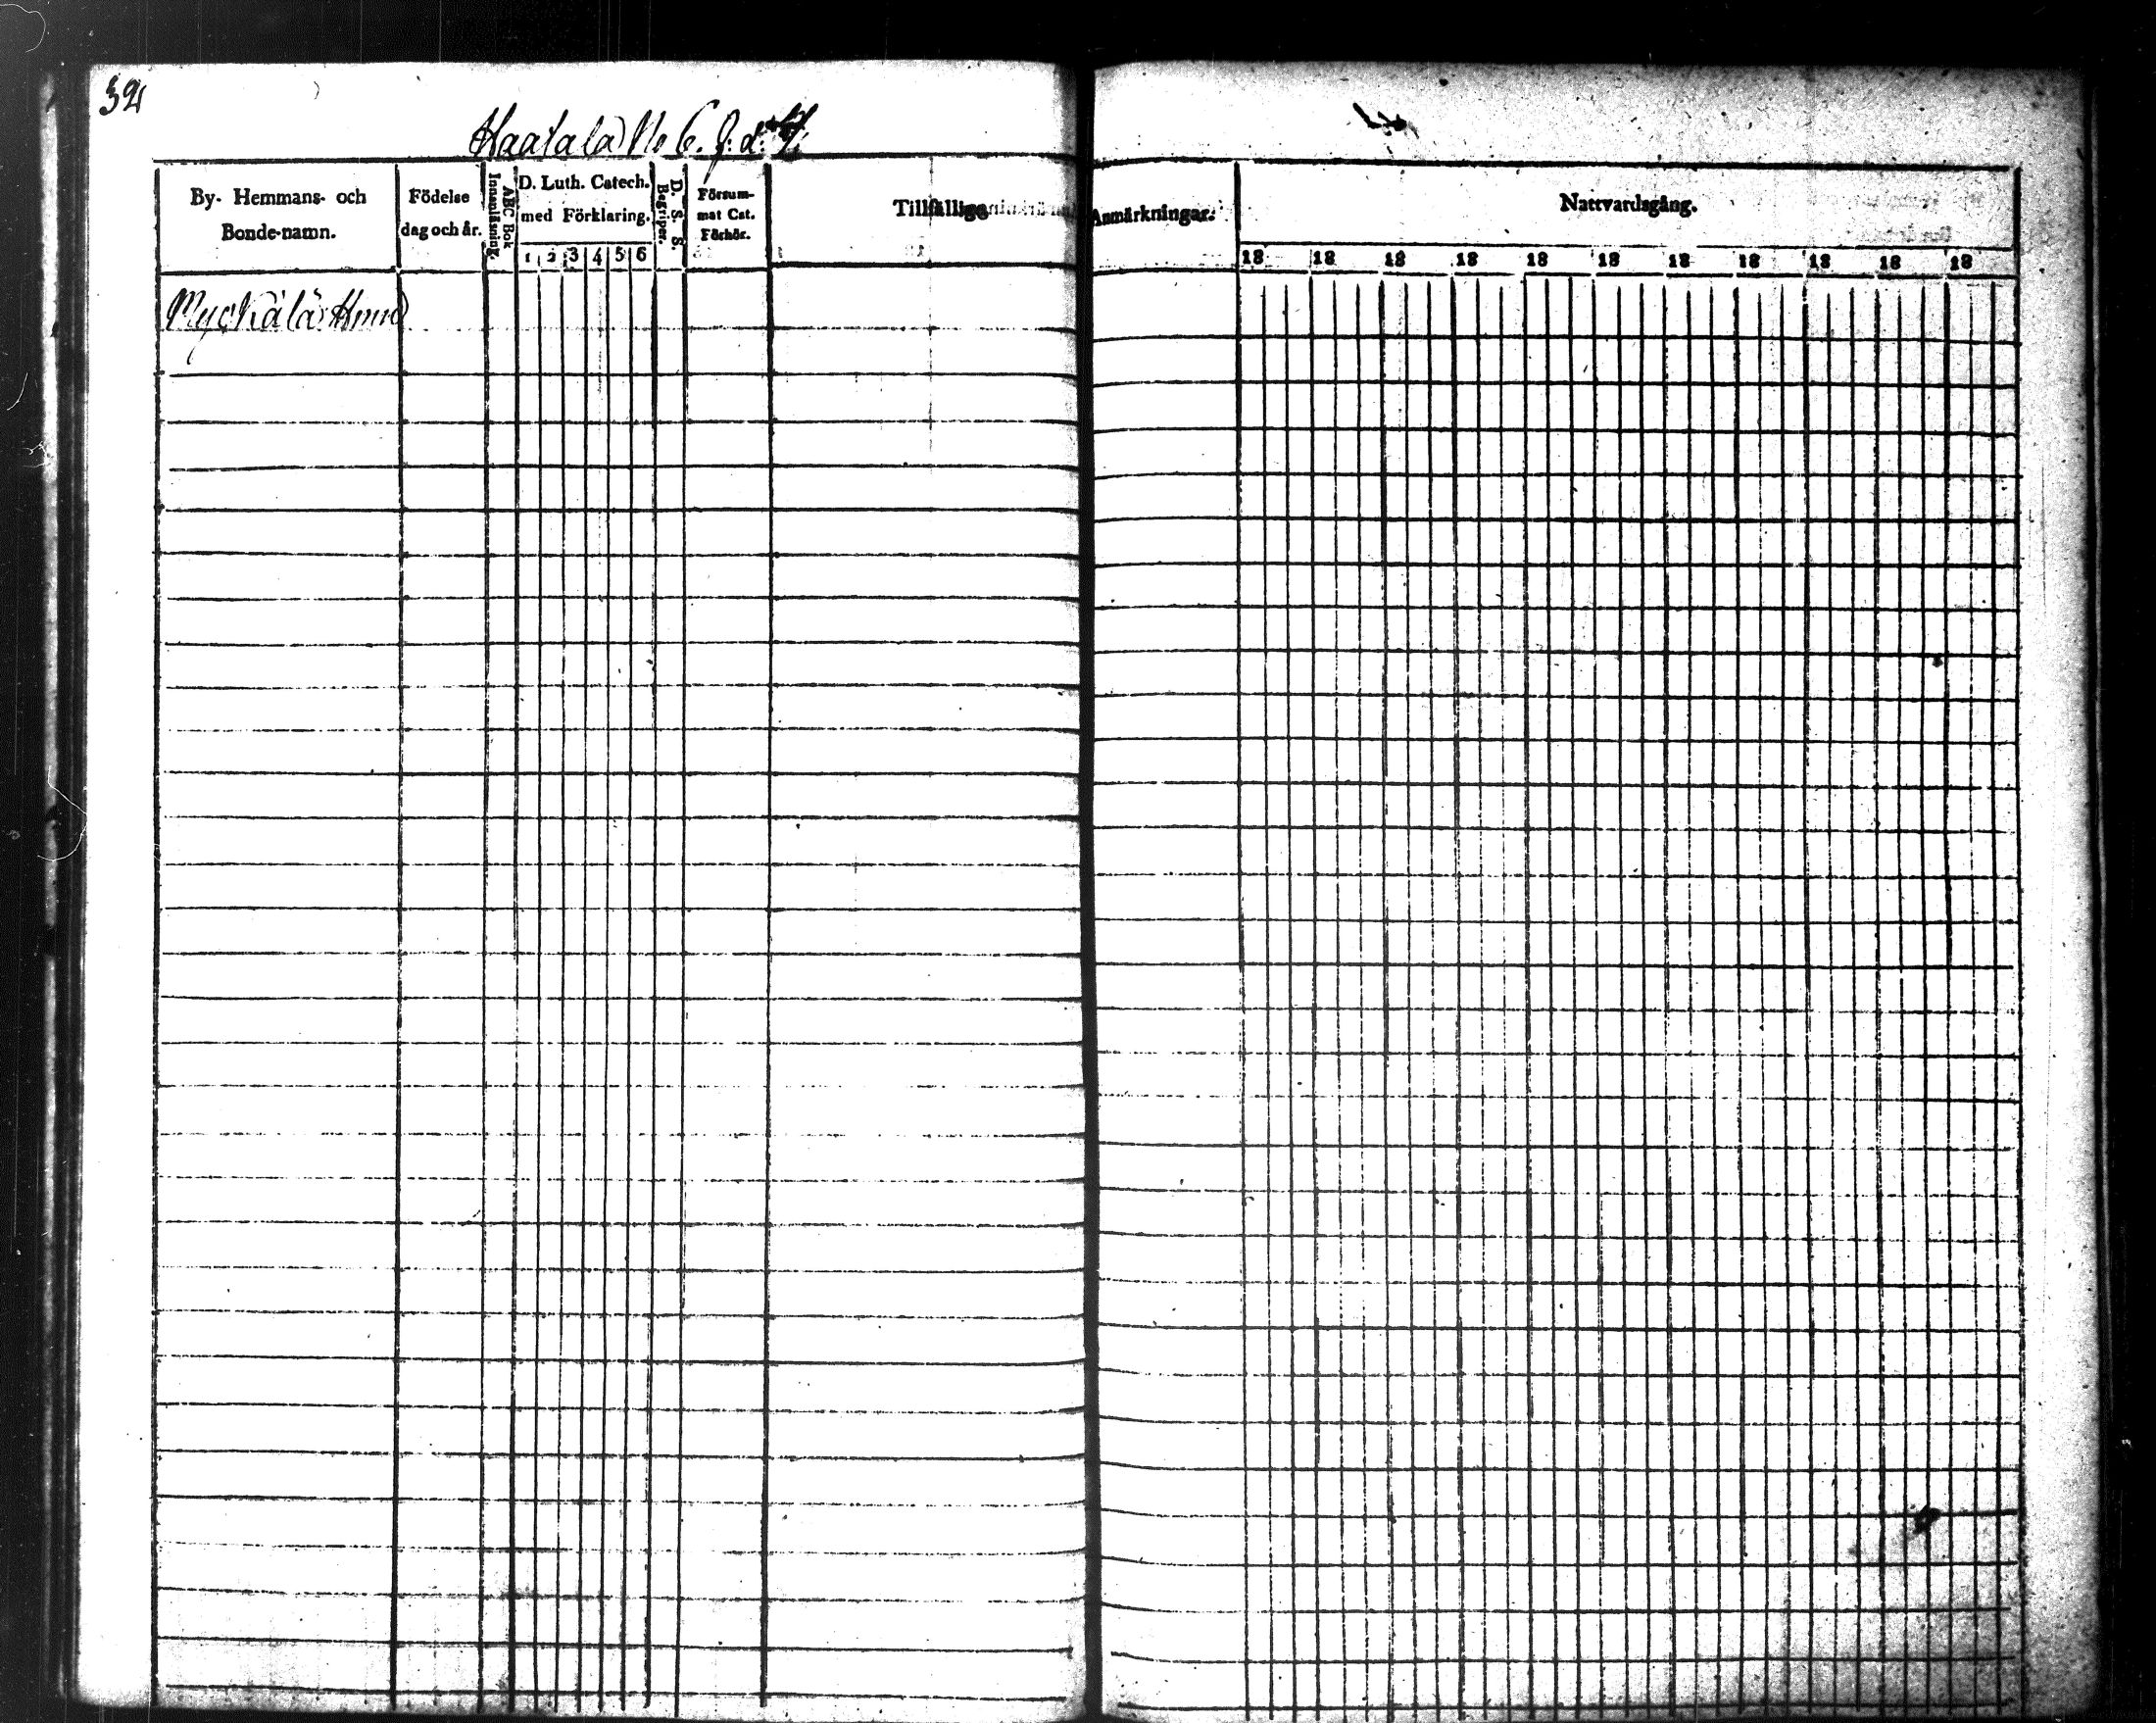 Haatala No 6.
By- Hemmans- och
Bonde-namn.
Födelse
dag och år.
ABC Bok
Innanläsning.
D. Luth. Catech.
med Förklaring.
1 2 3 4 5 6
D. S. S.
Begriper.
Försum-
mat Cat.
Förhör.
Tillfällige
Anmärkningar.
Nattvardsgång.
18 18 18 18 18 18 18 18 18 18 18